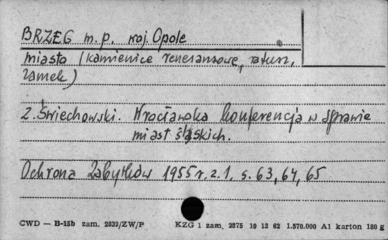 BRZEG m.p. woj. Opole
miasto (kamienice renesansowe, ratusz,
zamek)
Z. Świechowski. Wrocławska konferencja w sprawie
miast śląskich.
Ochrona Zabytków 1955 r. z. 1. s. 63, 64, 65
CWD — B-15b zam. 2832/ZW/P KZG 1 zam. 2875 10 12 62 1.570.000 A1 karton 180 g